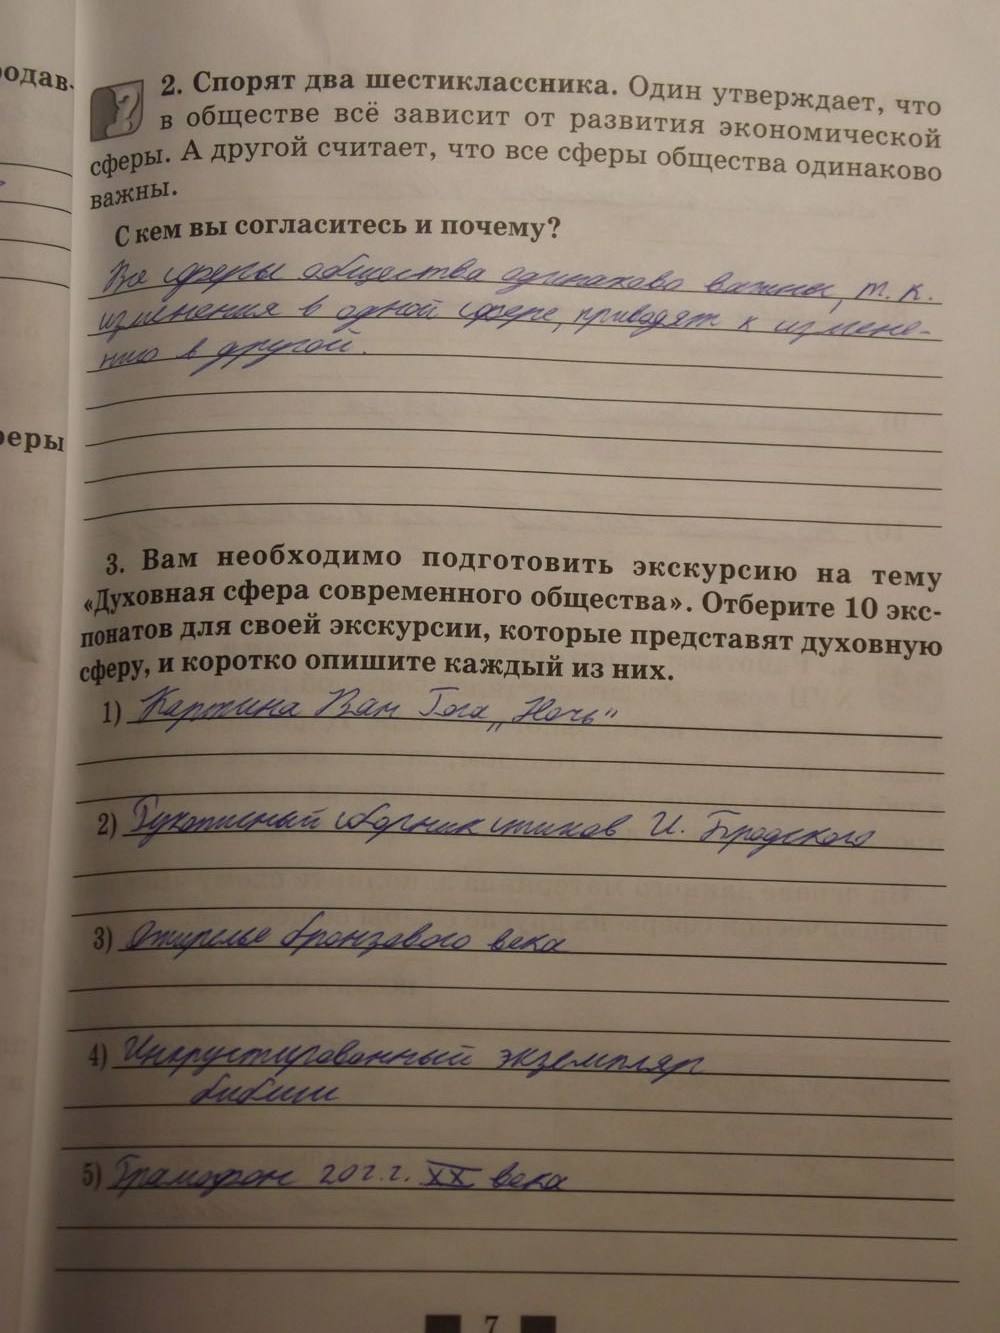 родав.
2. Спорят два шестиклассника. Один утверждает, что
в обществе всё зависит от развития экономической
сферы. А другой считает, что все сферы общества одинаково
важны.
С кем вы согласитесь и почему?
Все сферы общества одинаково важны, т. к.
изменения в одной сфере, приводят к измене-
нию в другой.
феры
3. Вам необходимо подготовить экскурсию на тему
«Духовная сфера современного общества». Отберите 10 экс-
понатов для своей экскурсии, которые представят духовную
сферу, и коротко опишите каждый из них.
1) Картина Ван Гога „Ночь"
2) Рукописный сборник стихов И. Бродского
3) Ожирелье бронзового века
4) Инкрустированный экземпляр
библии
5) Грамофон 20 г.г. XX века
7